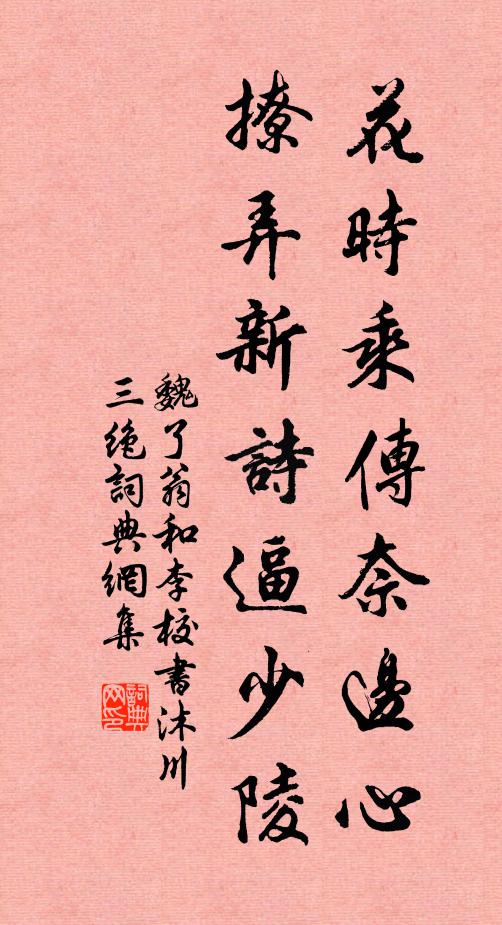 花時乘傳奈邊心
撩弄新詩逼少陵
魏了翁和李校書沐川
三絶詞典網集
詞典网印